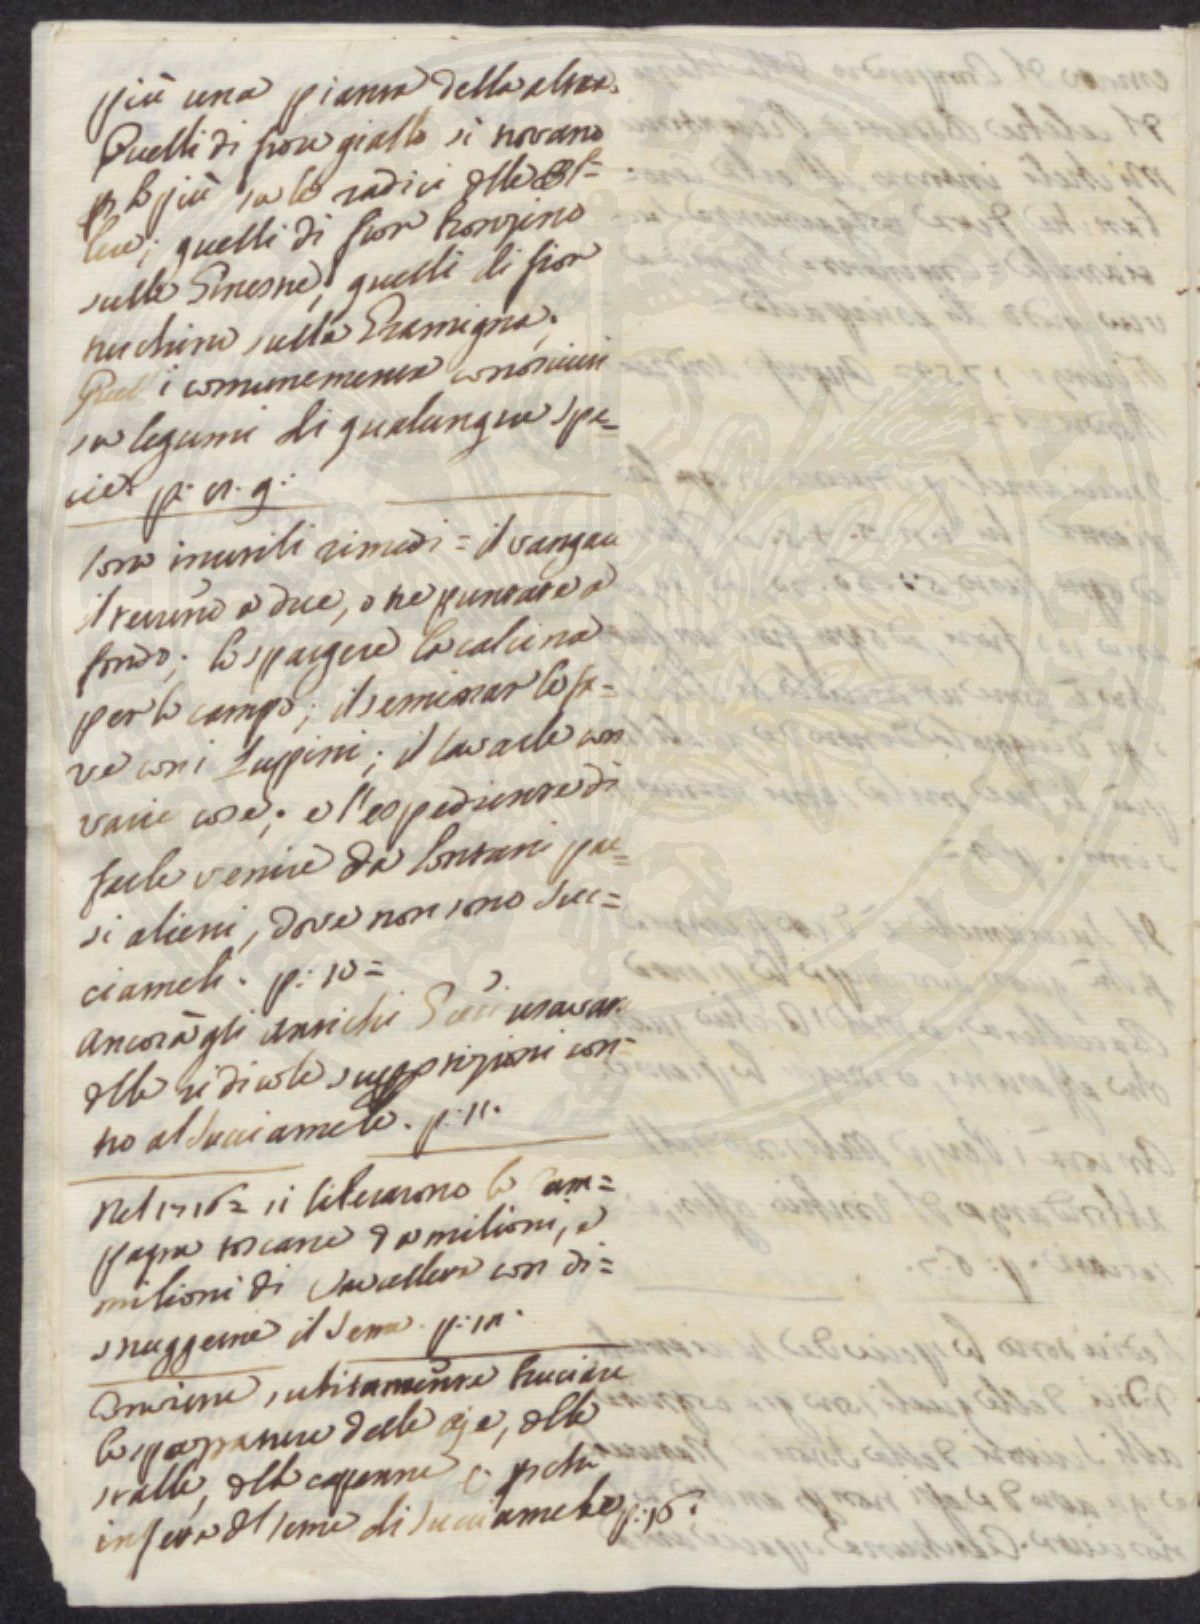 più una pianta della altra.
Quelli di fiore giallo si trovano
p lo più su le radici delle
; quelli di fior bronzino
sulle Ginestre; quelli di fior
turchino sulla Gramigna;
Quelli comunemente conosciuti
su legumi di qualunque spe=
cie. p:
Sono inutili rimedi = il vangare
il terreno a due, o tre puntate a
fondo; lo spargere la calcina
per lo campo; il seminar le fa=
ve con i Luppini; il lavarle con
varie cose; e l'espediente di
farle venire da lontani pae=
si alieni, dove non sono Suc=
ciameli. p: 10=
Ancora gli antichi Greci usavan
delle ridicole superstizioni con=
tro al Succiamele. p: 11.
Nel 1716= si liberarono le Cam=
pagne toscane da milioni, e
milioni di Cavallette con di=
struggerne il Seme. p:
Conviene subitamente bruciare
le spazzature delle aje, delle
stalle, delle capanne p che
infette del seme di Succiamele p: 16.